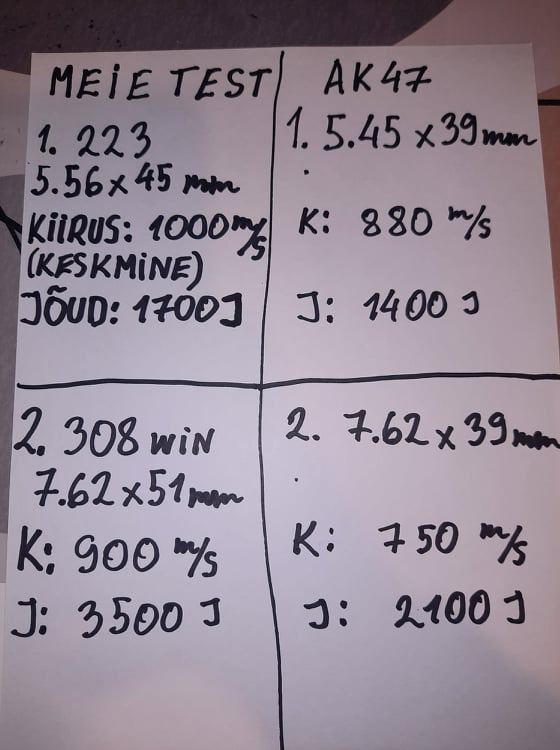 MEIE TEST
1. 223
5.56 x 45 mm
KIIRUS: 1000 m/s
(KESKMINE)
JÕUD: 1700 J
AK47
1. 5.45 x 39 mm
K: 880 m/s
J: 1400 J
2. 308 WIN
7.62 x 51 mm
K: 900 m/s
J: 3500 J
2. 7.62 x 39 mm
K: 750 m/s
J: 2100 J